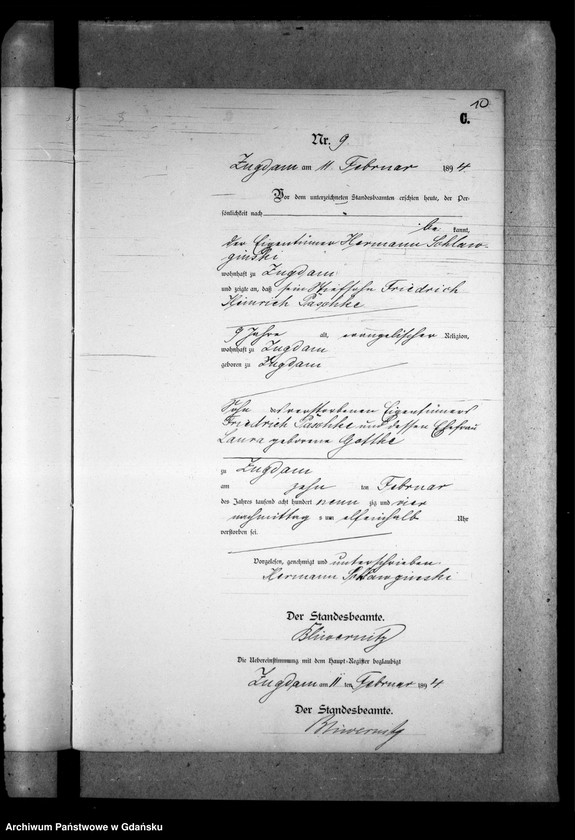 10
C.
Nr. 9
Zugdam am 11 Februar 1894
Vor dem unterzeichneten Standesbeamten erschien heute, der Per-
sönlichkeit nach
be kannt,
der Eigentümer Hermann Schlaw-
ginski
wohnhaft zu Zugdam
und zeigte an, daß sein Stiefsohn Friedrich
Heinrich Paschke
9 Jahre alt, evangelischer Religion,
wohnhaft zu Zugdam
geboren zu Zugdam
Sohn des verstorbenen Eigentümers
Friedrich Paschke und dessen Ehefrau
Laura geborene
zu Zugdam
am zehn ten Februar
des Jahres tausend acht hundert neun zig und vier
nachmittag s um elfeinhalb Uhr
verstorben sei.
Vorgelesen, genehmigt und unterschrieben
Hermann Schlawginski
Der Standesbeamte.
Die Uebereinstimmung mit dem Haupt-Register beglaubigt
Zugdam am 11 ten Februar 1894
Der Standesbeamte.
Archiwum Państwowe w Gdańsku